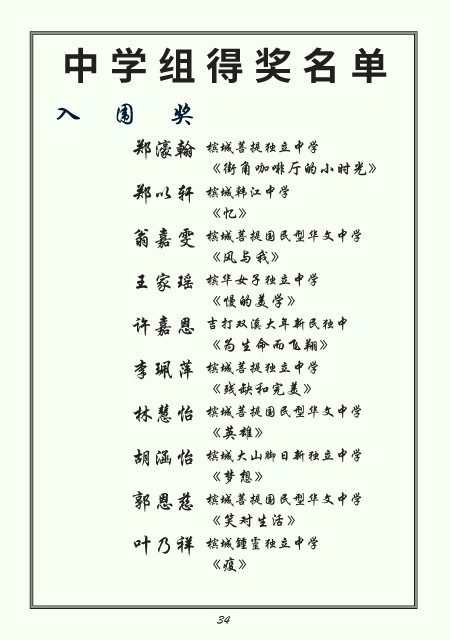 中学组得奖名单
入围奖
郑濠翰 槟城菩提独立中学
《街角咖啡厅的小时光》
郑以轩 槟城韩江中学
《忆》
翁嘉雯 槟城菩提国民型华文中学
《风与我》
王家瑶 槟华女子独立中学
《慢的美学》
许嘉恩 吉打双溪大年新民独中
《为生命而飞翔》
李珮萍 槟城菩提独立中学
《残缺和完美》
林慧怡 槟城菩提国民型华文中学
《英雄》
胡涵怡 槟城大山脚日新独立中学
《梦想》
郭恩慈 槟城菩提国民型华文中学
《笑对生活》
叶乃祥 槟城鍾靈独立中学
《疫》
34